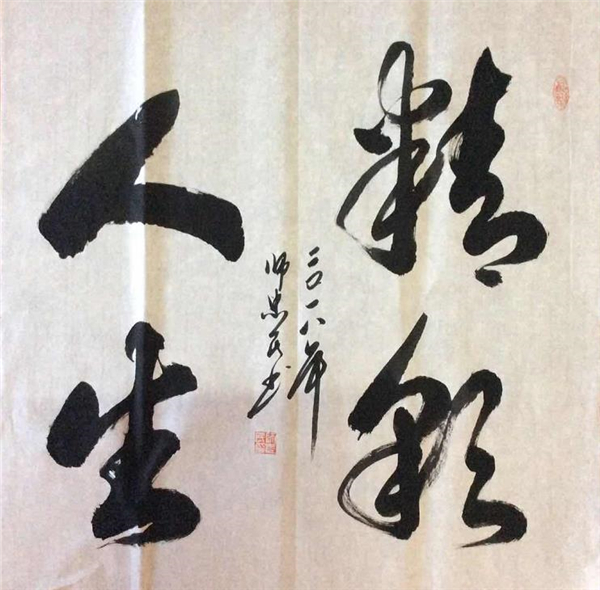 精彩
人生
二〇一八年
师忠民书